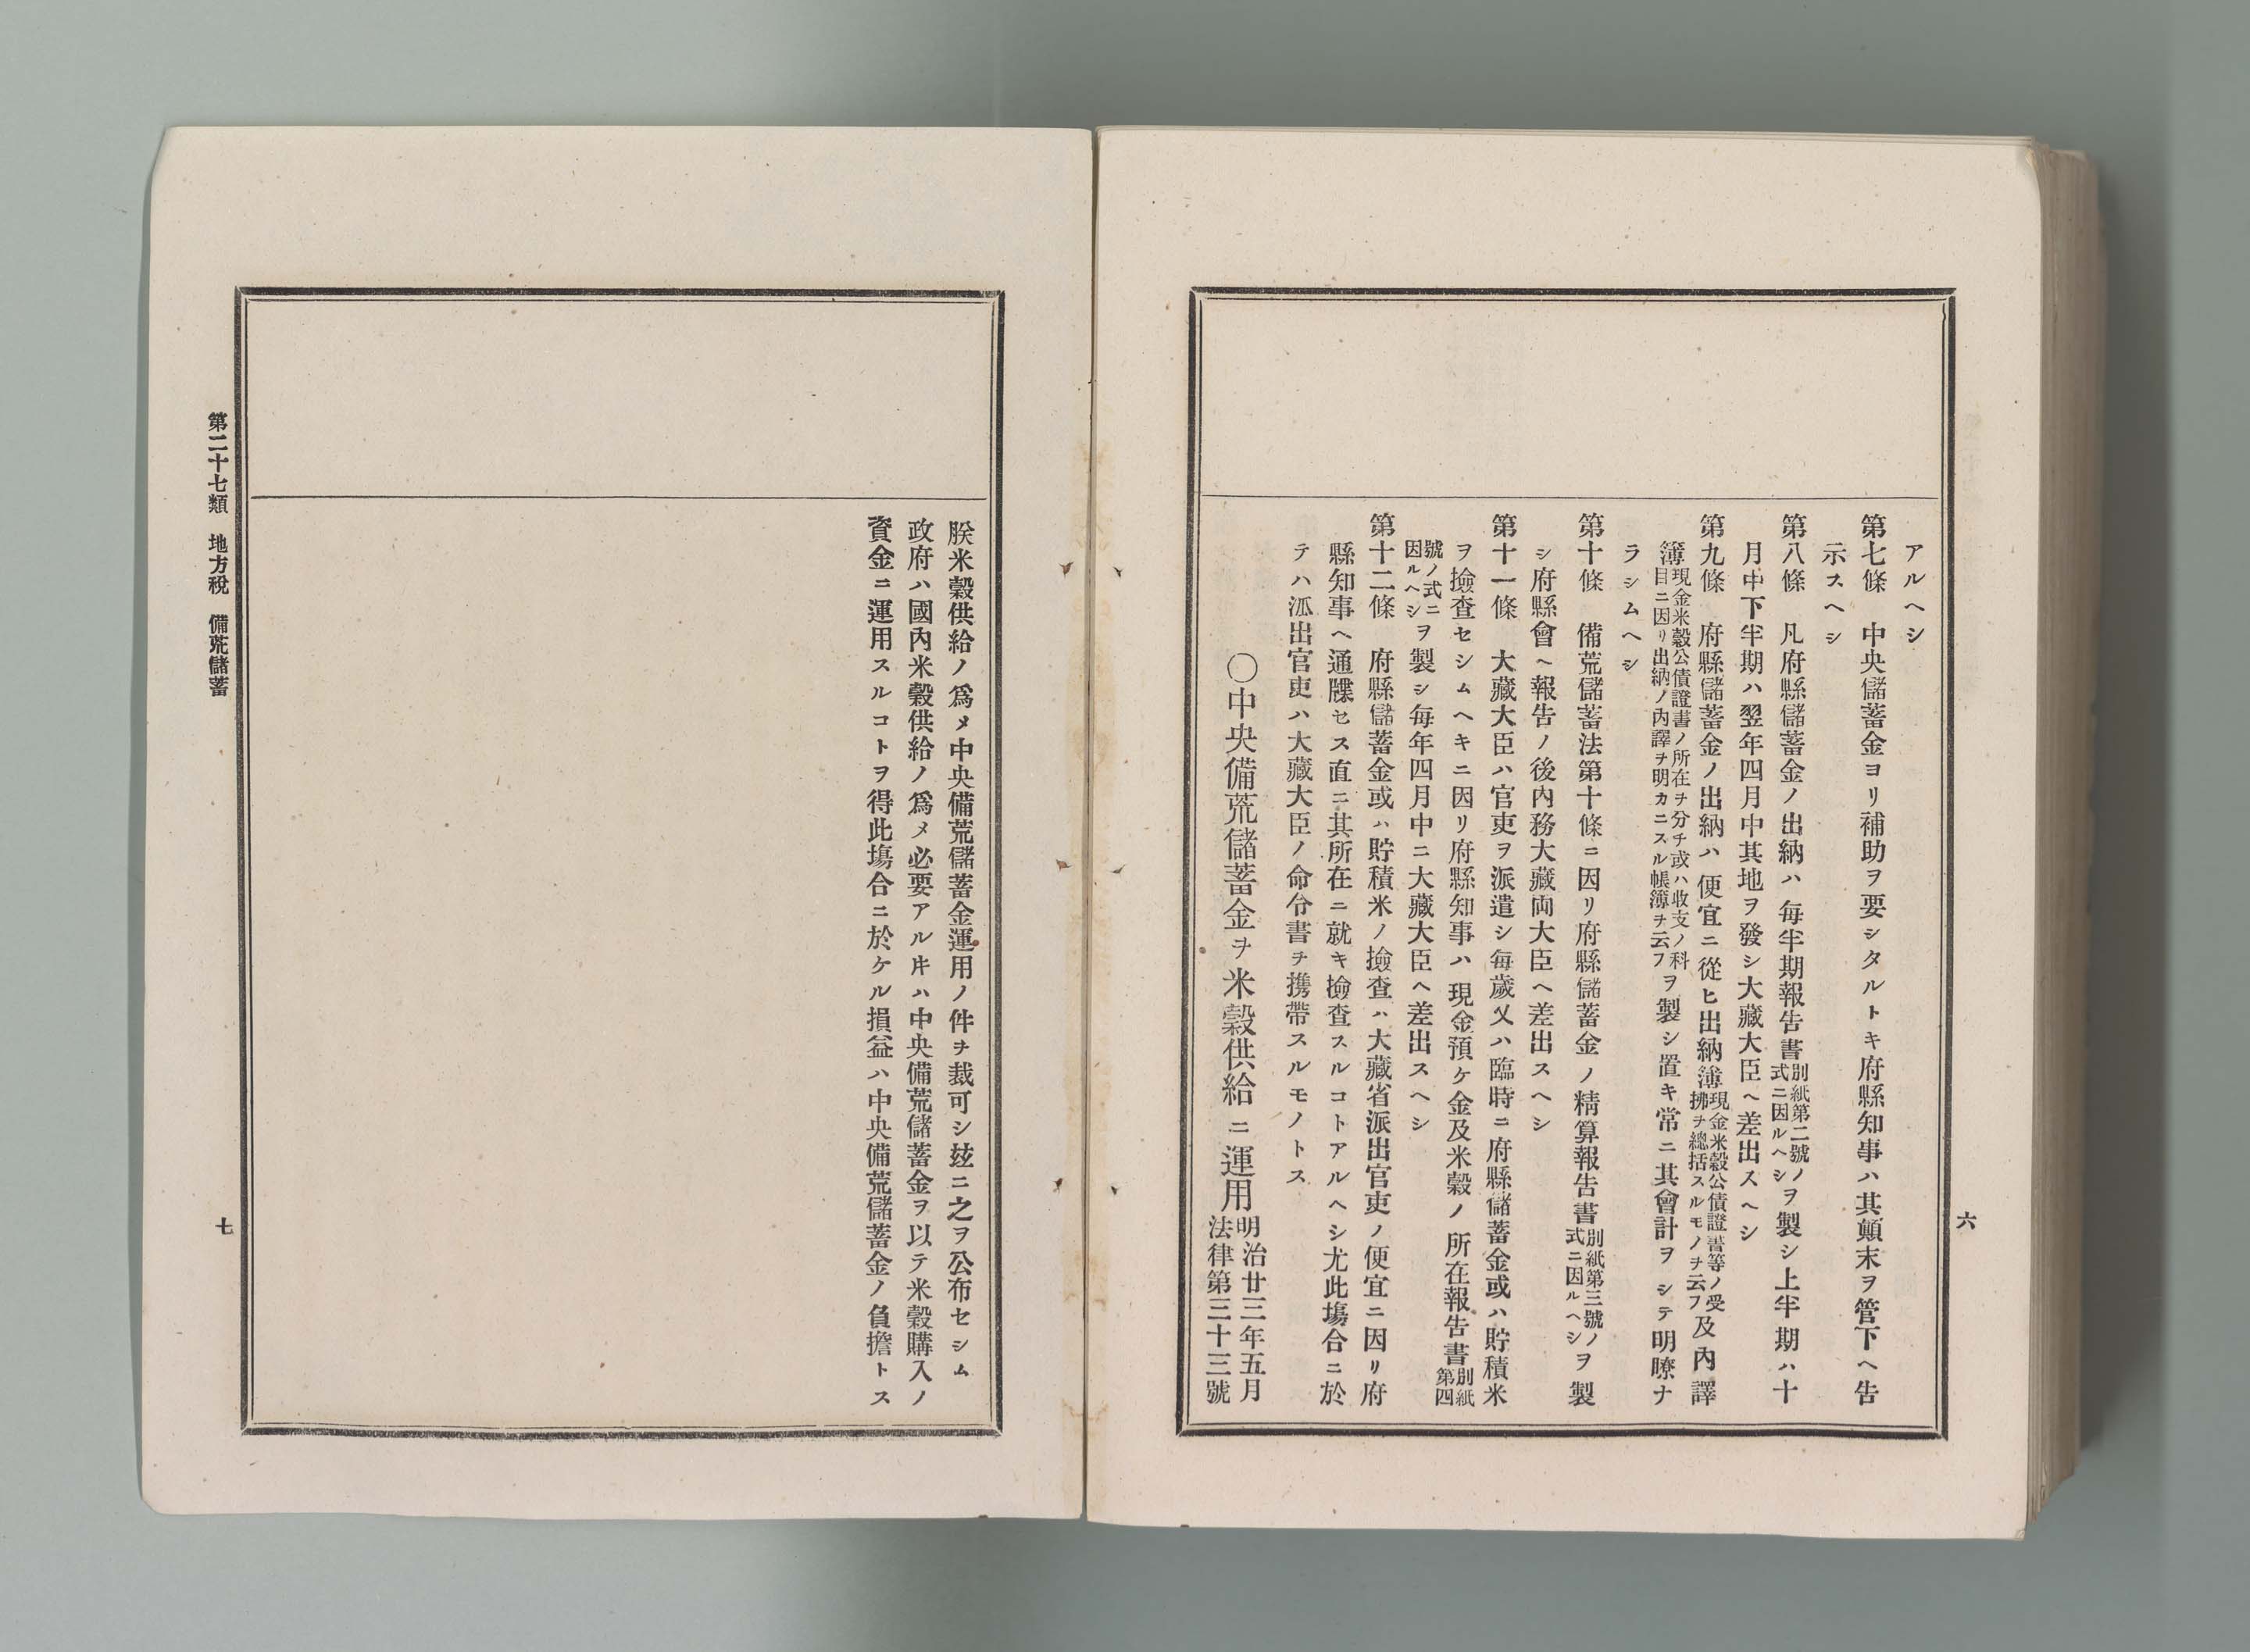 六
アルヘシ
第七條　中央儲蓄金ヨリ補助ヲ要シタルトキ府縣知事ハ其顛末ヲ管下ヘ告
示スヘシ
第八條　凡府縣儲蓄金ノ出納ハ毎半期報告書別紙第二號ノ式ニ因ルヘシヲ製シ上半期ハ十
月中下半期ハ翌年四月中其地ヲ發シ大藏大臣ヘ差出スヘシ
第九條　府縣儲蓄金ノ出納ハ便宜ニ從ヒ出納簿現金米穀公債證書等ノ受拂ヲ總括スルモノヲ云フ及內譯
簿現金米穀公債證書ノ所在ヲ分チ或ハ收支ノ科目ニ因リ出納ノ內譯ヲ明カニスル帳簿ヲ云フヲ製シ置キ常ニ其會計ヲシテ明瞭ナ
ラシムヘシ
第十條　備荒儲蓄法第十條ニ因リ府縣儲蓄金ノ精算報告書別紙第三號ノ式ニ因ルヘシヲ製
シ府縣會ヘ報告ノ後內務大藏兩大臣ヘ差出スヘシ
第十一條　大藏大臣ハ官吏ヲ派遣シ每歲又ハ臨時ニ府縣儲蓄金或ハ貯積米
ヲ撿查セシムヘキニ因リ府縣知事ハ現金預ケ金及米穀ノ所在報告書別紙第四
號ノ式ニ因ルヘシヲ製シ每年四月中ニ大藏大臣ヘ差出スヘシ
第十二條　府縣儲蓄金或ハ貯積米ノ撿查ハ大藏省派出官吏ノ便宜ニ因リ府
縣知事ヘ通牒セス直ニ其所在ニ就キ撿查スルコトアルヘシ尤此塲合ニ於
テハ派出官吏ハ大藏大臣ノ命令書ヲ携帶スルモノトス
〇中央備荒儲蓄金ヲ米穀供給ニ運用明治廿三年五月法律第三十三號
朕米穀供給ノ爲メ中央備荒儲蓄金運用ノ件ヲ裁可シ玆ニ之ヲ公布セシム
政府ハ國內米穀供給ノ爲メ必要アルキハ中央備荒儲蓄金ヲ以テ米穀購入ノ
資金ニ運用スルコトヲ得此塲合ニ於ケル損益ハ中央備荒儲蓄金ノ負擔トス
第二十七類　地方稅　備荒儲蓄
七